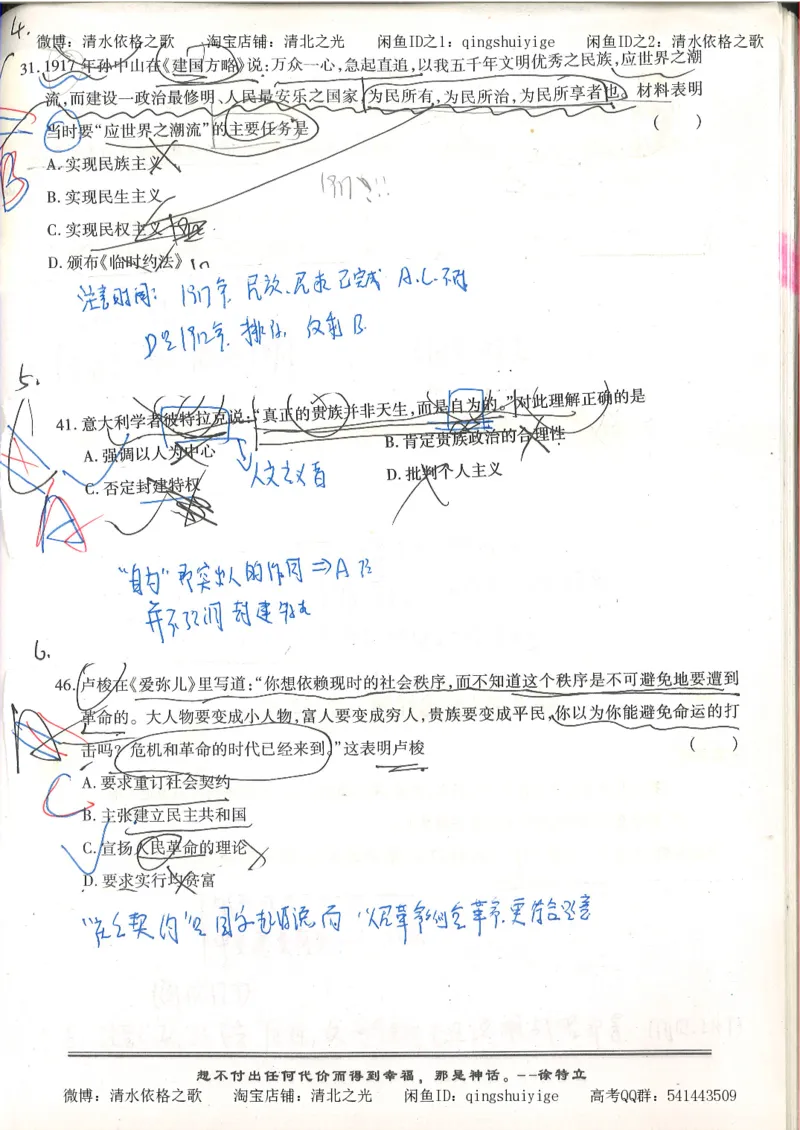 4.
微博：清水依格之歌 淘宝店铺：清北之光 闲鱼ID之1：qingshuiyige 闲鱼ID之2：清水依格之歌
31.1917年孙中山在《建国方略》说：万众一心，急起直追，以我五千年文明优秀之民族，应世界之潮
流，而建设一政治最修明、人民最安乐之国家，为民所有，为民所治，为民所享者也。材料表明
当时要“应世界之潮流”的主要任务是 （ ）
B
A. 实现民族主义
1917!!!
B. 实现民生主义
C. 实现民权主义
D. 颁布《临时约法》
注意时间：1917年 民族、民权已完成 A.C.不对
D是1912年 排除，仅剩B.
5.
41. 意大利学者彼特拉克说：“真正的贵族并非天生，而是自为的。”对此理解正确的是
A. 强调以人为中心 B. 肯定贵族政治的合理性
C. 否定封建特权 人文主义者 D. 批判个人主义
A
“自为”即突出人的作用⇒A
并不强调封建特权
6.
46. 卢梭在《爱弥儿》里写道：“你想依赖现时的社会秩序，而不知道这个秩序是不可避免地要遭到
革命的。大人物要变成小人物，富人要变成穷人，贵族要变成平民，你以为你能避免命运的打
击吗？危机和革命的时代已经来到。”这表明卢梭 （ ）
A
A. 要求重订社会契约
C
B. 主张建立民主共和国
C. 宣扬人民革命的理论
D. 要求实行均贫富
想不付出任何代价而得到幸福，那是神话。--徐特立
微博：清水依格之歌 淘宝店铺：清北之光 闲鱼ID：qingshuiyige 高考QQ群：541443509